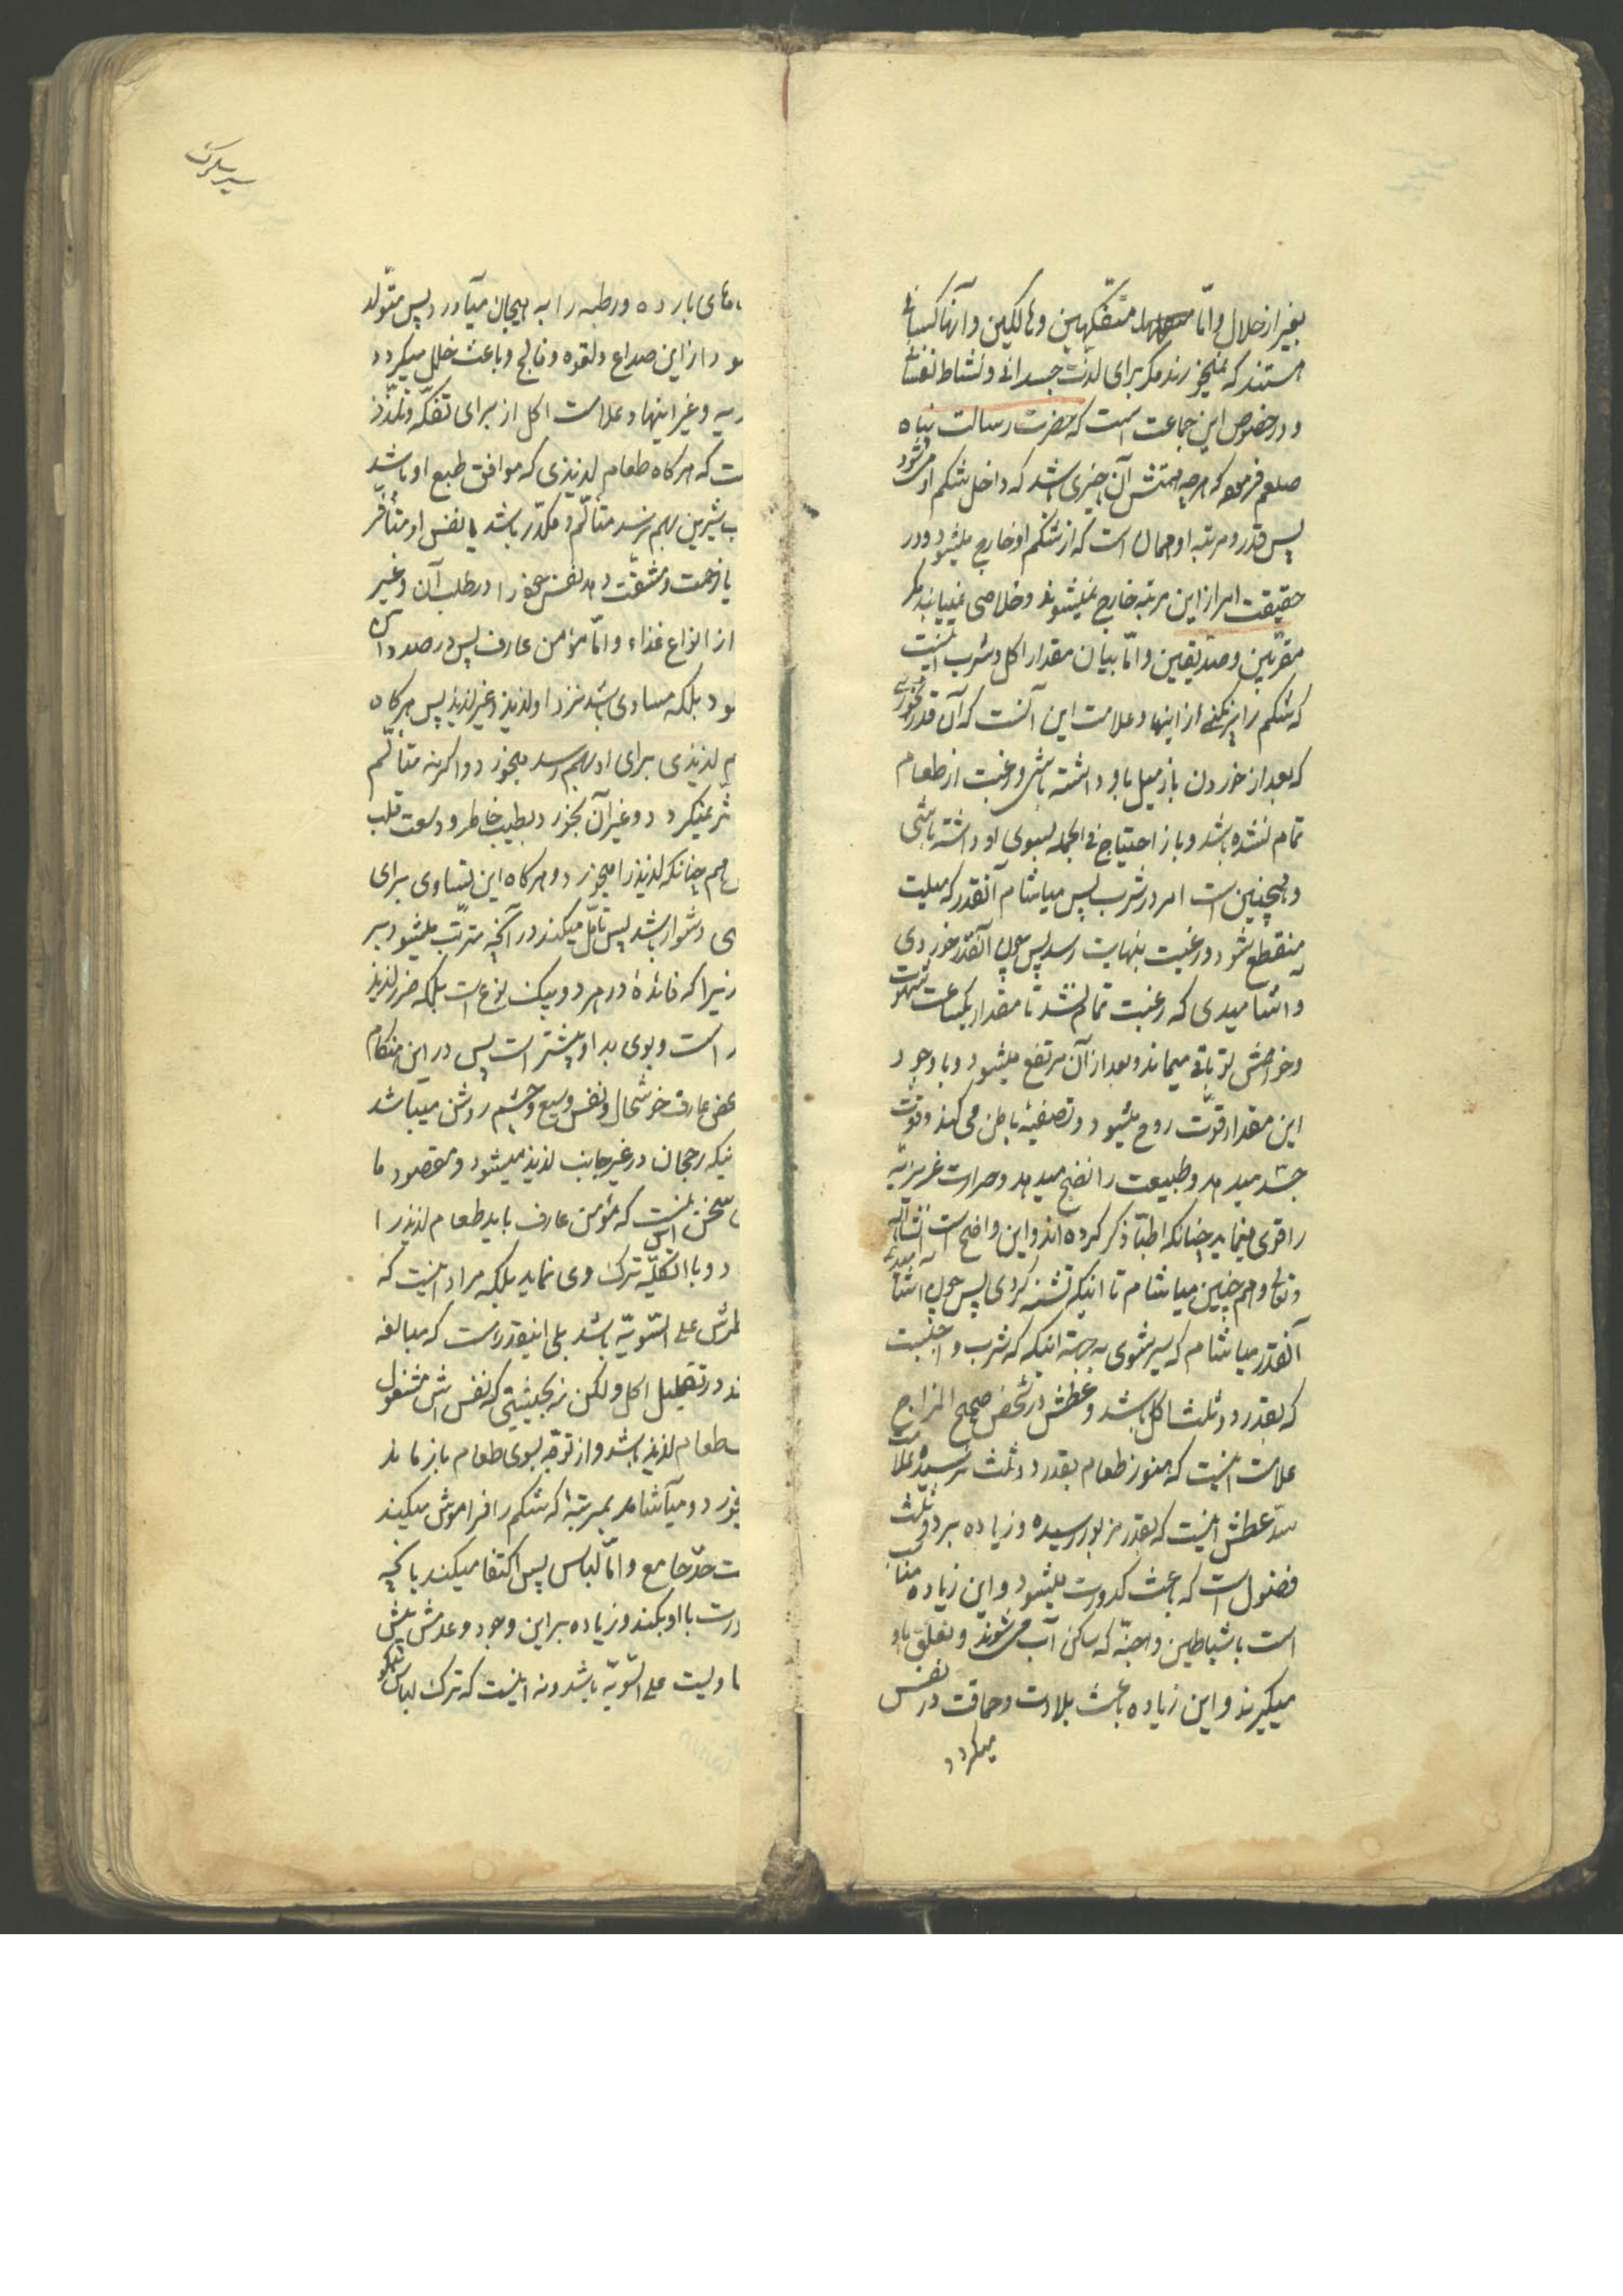 بغیر از حلال و امّا متفکّهین و هالکین و آنها کسانی
هستند که نمیخورند مگر برای لذّت جسدانی و نشاط نفسانی
و در خصوص این جماعت است که حضرت رسالت پناه
صلعم فرموده که هرچه همتش آن چیزی باشد که داخل شکم او می‌شود
پس قدر و مرتبه او همان است که از شکم او خارج میشود و در
حقیقت امر از این مرتبه خارج نمیشوند و خلاصی نمییابند مگر
مقرّبین و صدّیقین و امّا بیان مقدار اکل و شرب اینست
که شکم را پر نکنی از اینها و علامت این آنست که آن قدر بخوری
که بعد از خوردن باز میل باو داشته باشی و رغبت از طعام
تمام نشده باشد و باز احتیاج فی الجمله بسوی او داشته باشی
و همچنین است امر در شرب پس میاشام آنقدر که میلیت
منقطع شود و رغبت بنهایت رسد پس چون آنقدر خوردی
و اشامیدی که رغبت تمام نشد تا مقدار یکساعت شهوت
و خواهش تو باقی میماند و بعد از آن مرتفع میشود و با وجود
این مقدار قوّت روح میشود و تصفیهٔ باطن می کند و قوّت
جسد میدهد و طبیعت را نضج میدهد و حرارت غریزیّه
را قوی مینماید چنانکه اطبّا ذکر کرده اند و این واضح است انشاءالله
و تعالی و هم چنین میاشام تا اینکه تشنه گردی پس چون اشامیدی
آنقدر میاشام که سیر شوی به جهة اینکه که شرب واجبست
که بقدر دو ثلث اکل باشد و عطش در شخص صحیح المزاج
علامت اینست که هنوز طعام بقدر دو ثلث نرسیده و علامت
سدّ عطش اینست که بقدر مزبور رسیده و زیاده بر دو ثلث
فضول است که باعث کدورت میشود و این زیاده مناسب
است با شیاطین و اجنّه که ساکن آب می‌شوند و تعلّق باو
میگیرند و این زیاده باعث بلادت و حماقت در نفس
میگردد
سیر سلوک
های بارده و رطبه را به هیجان میآورد پس متولّد
از این صداع و لقوه و فالج و باعث خلل میگردد
ریه و غیر اینها و علامت اکل از برای تفکّه و تلذّذ
که هرگاه طعام لذیذی که موافق طبع او باشد
شیرین بهم نرسد متألّم و مکدّر باشد یا نفس او متأفّر
یا زحمت و مشقّت دهد نفس خود را در طلب آن و غیر
از انواع غذاء و امّا مؤمن عارف پس در صدد این
بلکه مساوی باشد نزد او لذیذ و غیر لذیذ پس هرگاه
لذیذی برای او بهم رسد میخورد و اگر نه متألّم
نمیگردد و غیر آن بخورد بطیب خاطر و وسعت قلب
هم چنانکه لذیذ را میخورد و هرگاه این تساوی برای
دشوار باشد پس تأمّل میکند در آنچه مترتّب میشود بر
زیرا که فائدهٔ در هر دو بیک نوع است بلکه ضرر لذیذ
است و بوی بد او بیشتر است پس در این هنگام
عارف خوشحال و نفس وسیع و چشم روشن میباشد
رجحان در غیر جانب لذیذ میشود و مقصود ما
سخن این نیست که مؤمن عارف باید طعام لذیذ را
و با الکلّیّه ترک وی نماید بلکه مراد اینست که
علی السّویّه باشد بلی اینقدر است که مبالغه
در تقلیل اکل و لکن نه بحیثیتی که نفس اش مشغول
طعام لذیذ باشد و از توجّه بسوی طعام باز ماند
و میآشامد بمرتبهٔ که شکم را فراموش میکند
حدّ جامع و امّا لباس پس اکتفا میکند بانچه
با او بکند و زیاده بر این وجود و عدمش پیش
علی السّویّه باشد و نه اینست که ترک لباس نیکو